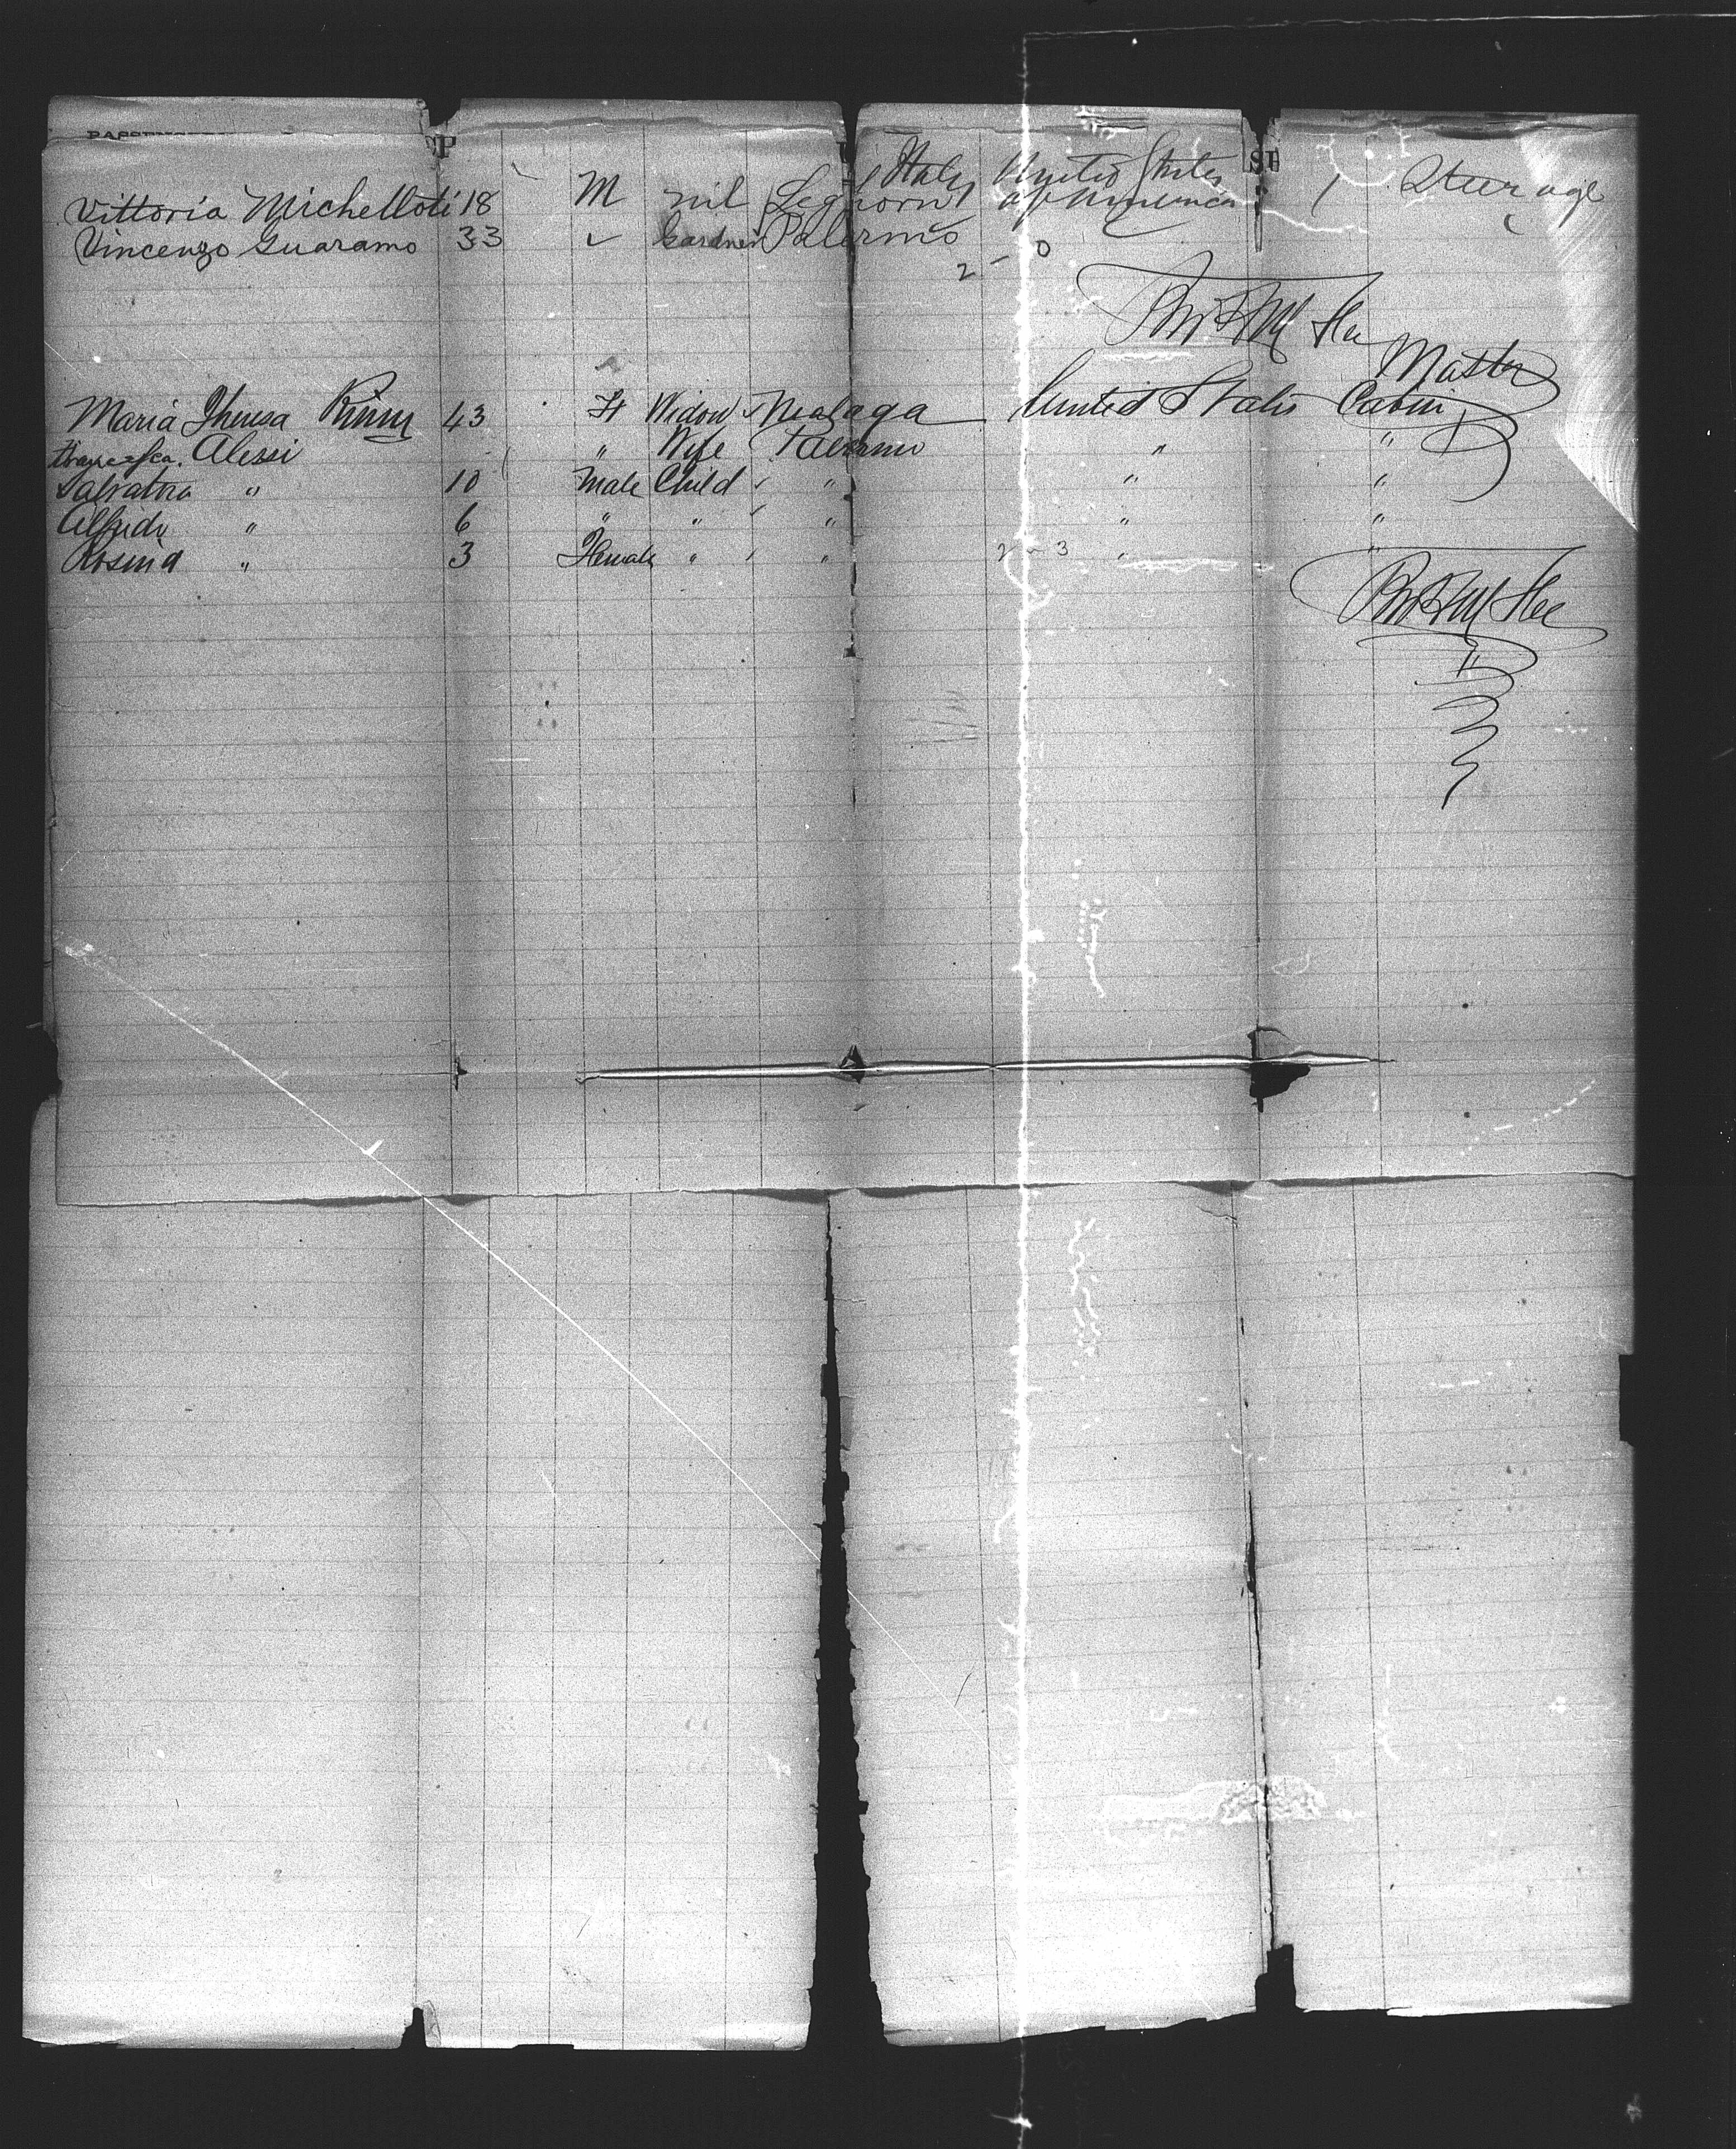 Vittoria Michelloti 18 M nil Leghorn Italy United States of America 1 Steerage
Vincenzo Guaramo 33 " Gardner Palermo
2 - 0
Master
Maria Theresa 43 F Widow Malaga United States Cabin
Francesca Alessi " Wife Palermo " "
Salvatore " 10 Male Child " " "
Alfredo " 6 " " " " "
Rosina " 3 Female " " 2 - 3 " "